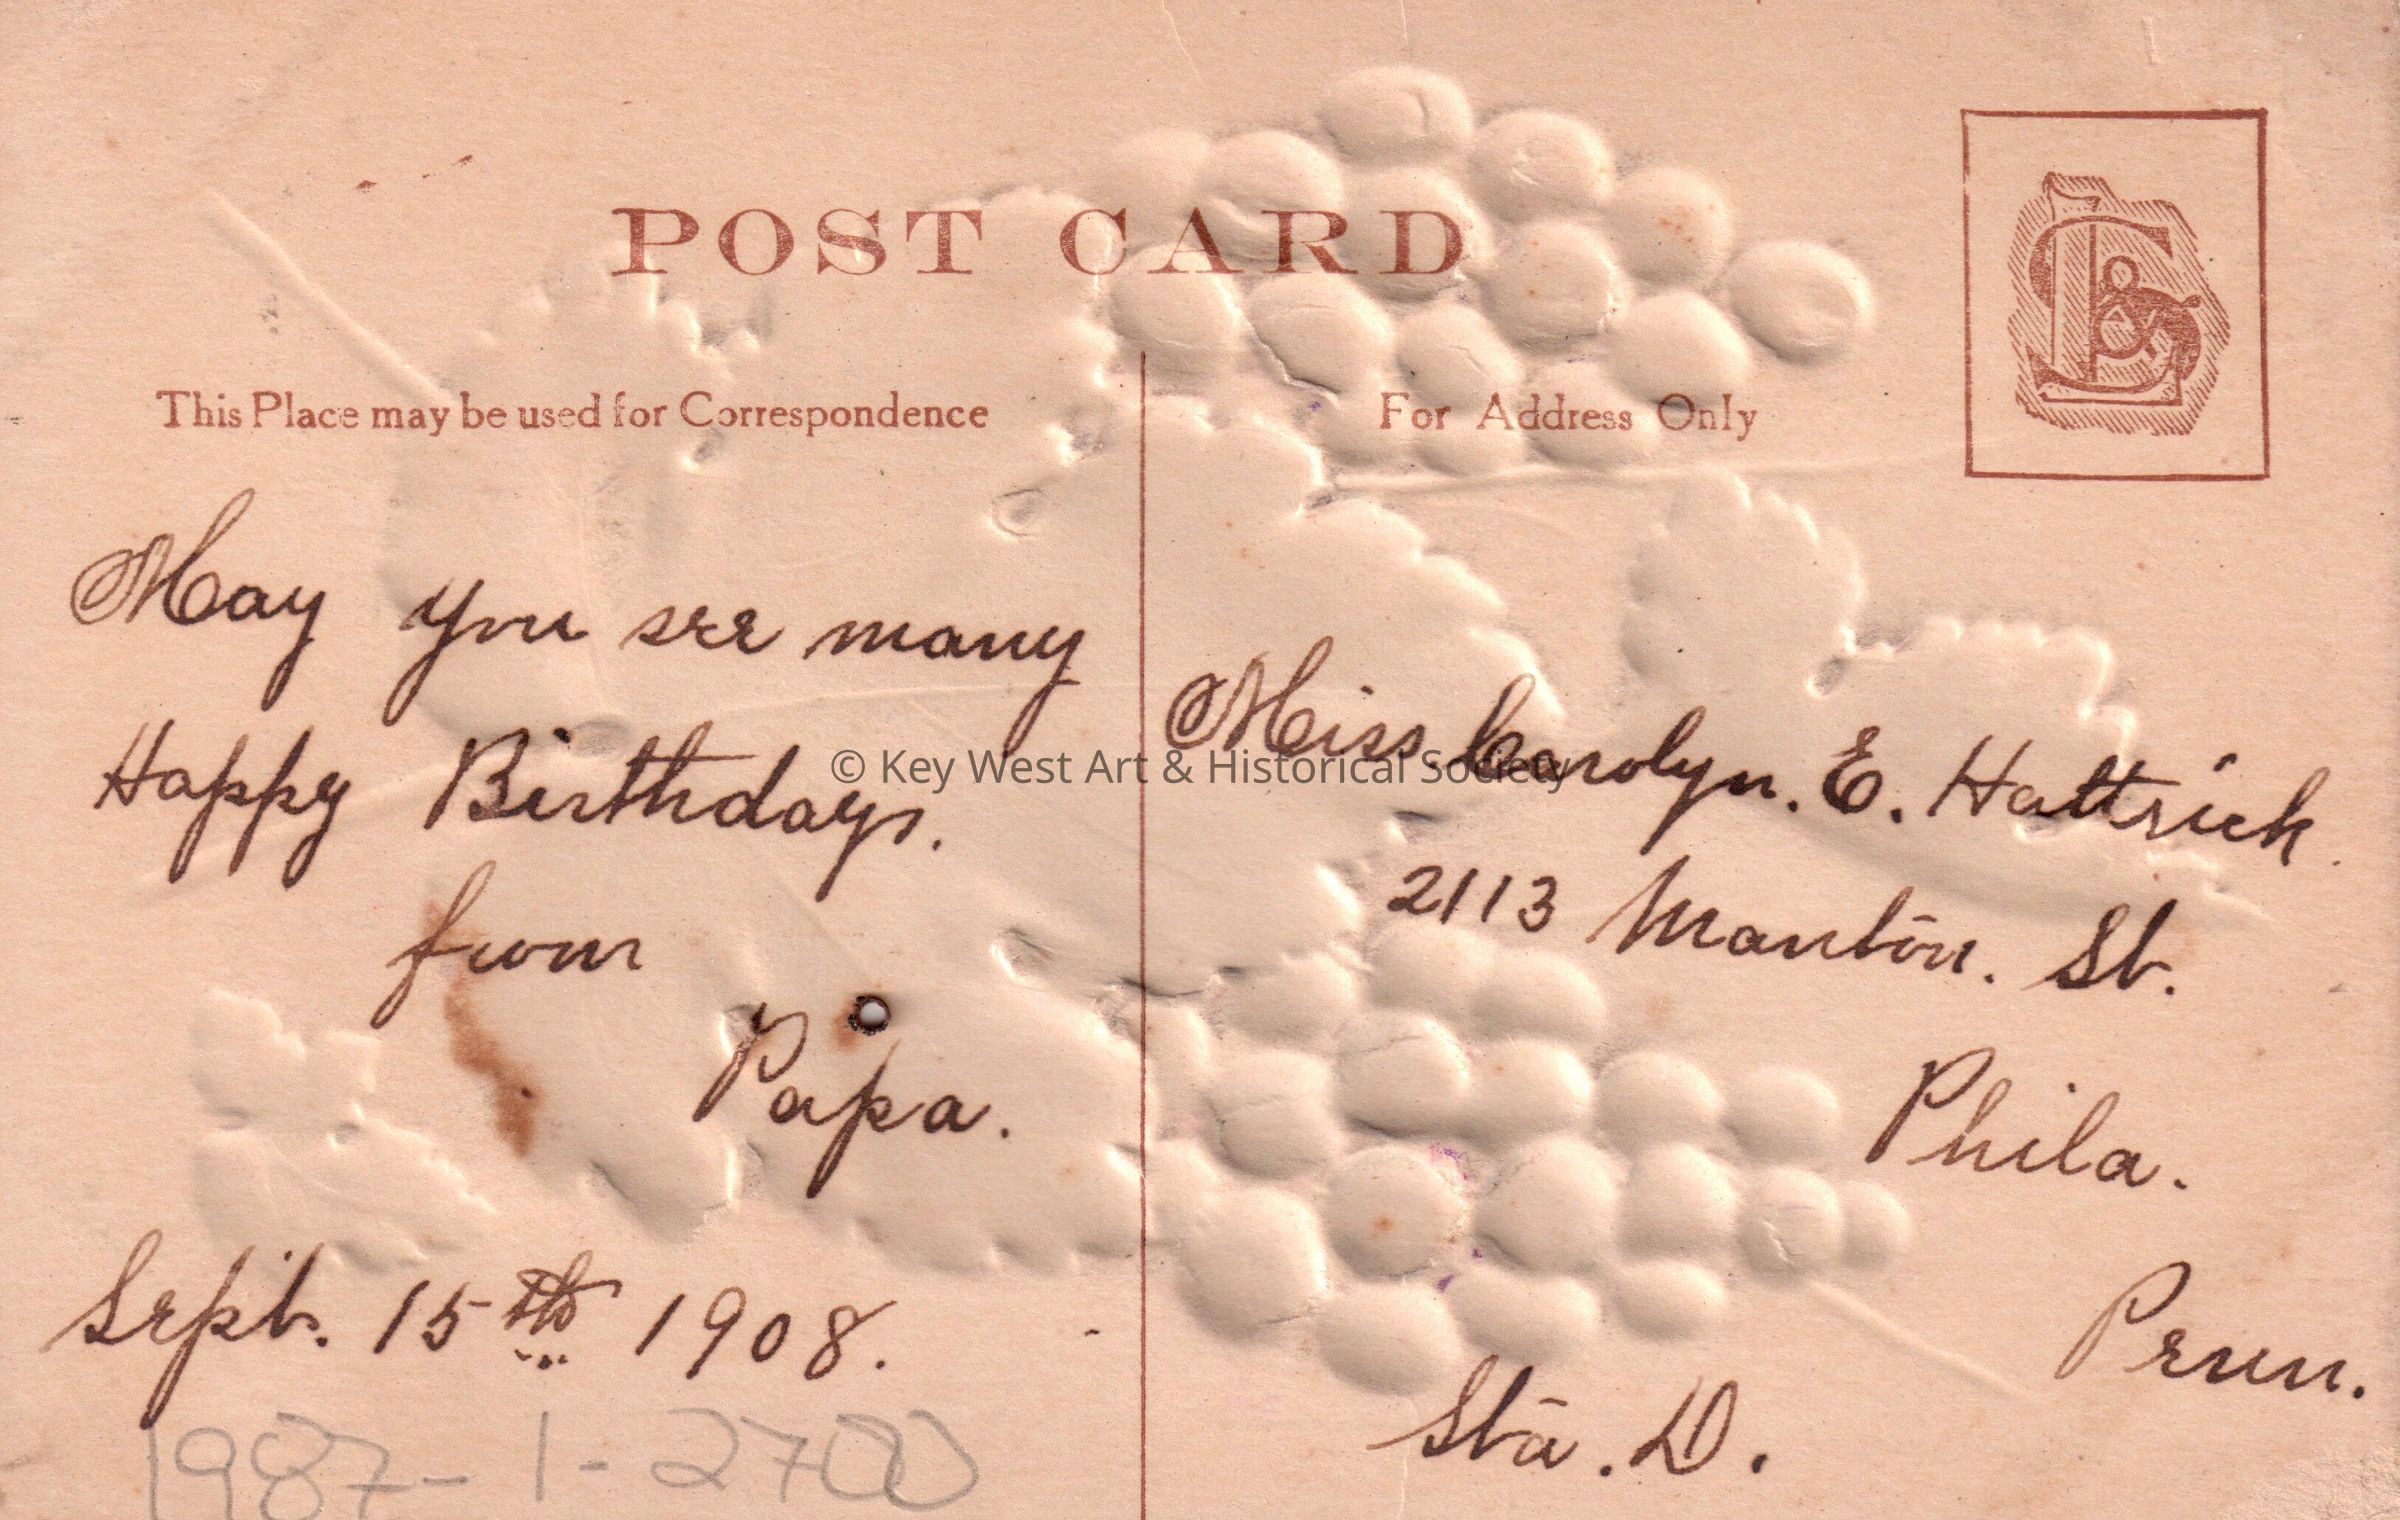 POST CARD
This Place may be used for Correspondence
For Address Only
May you see many
Happy Birthdays.
from
Papa.
Sept. 15th 1908.
1987-1-2700
Miss. Carolyn. E. Hattrick.
2113 Manton. St.
Phila.
Penn.
Sta. D.
© Key West Art & Historical Society